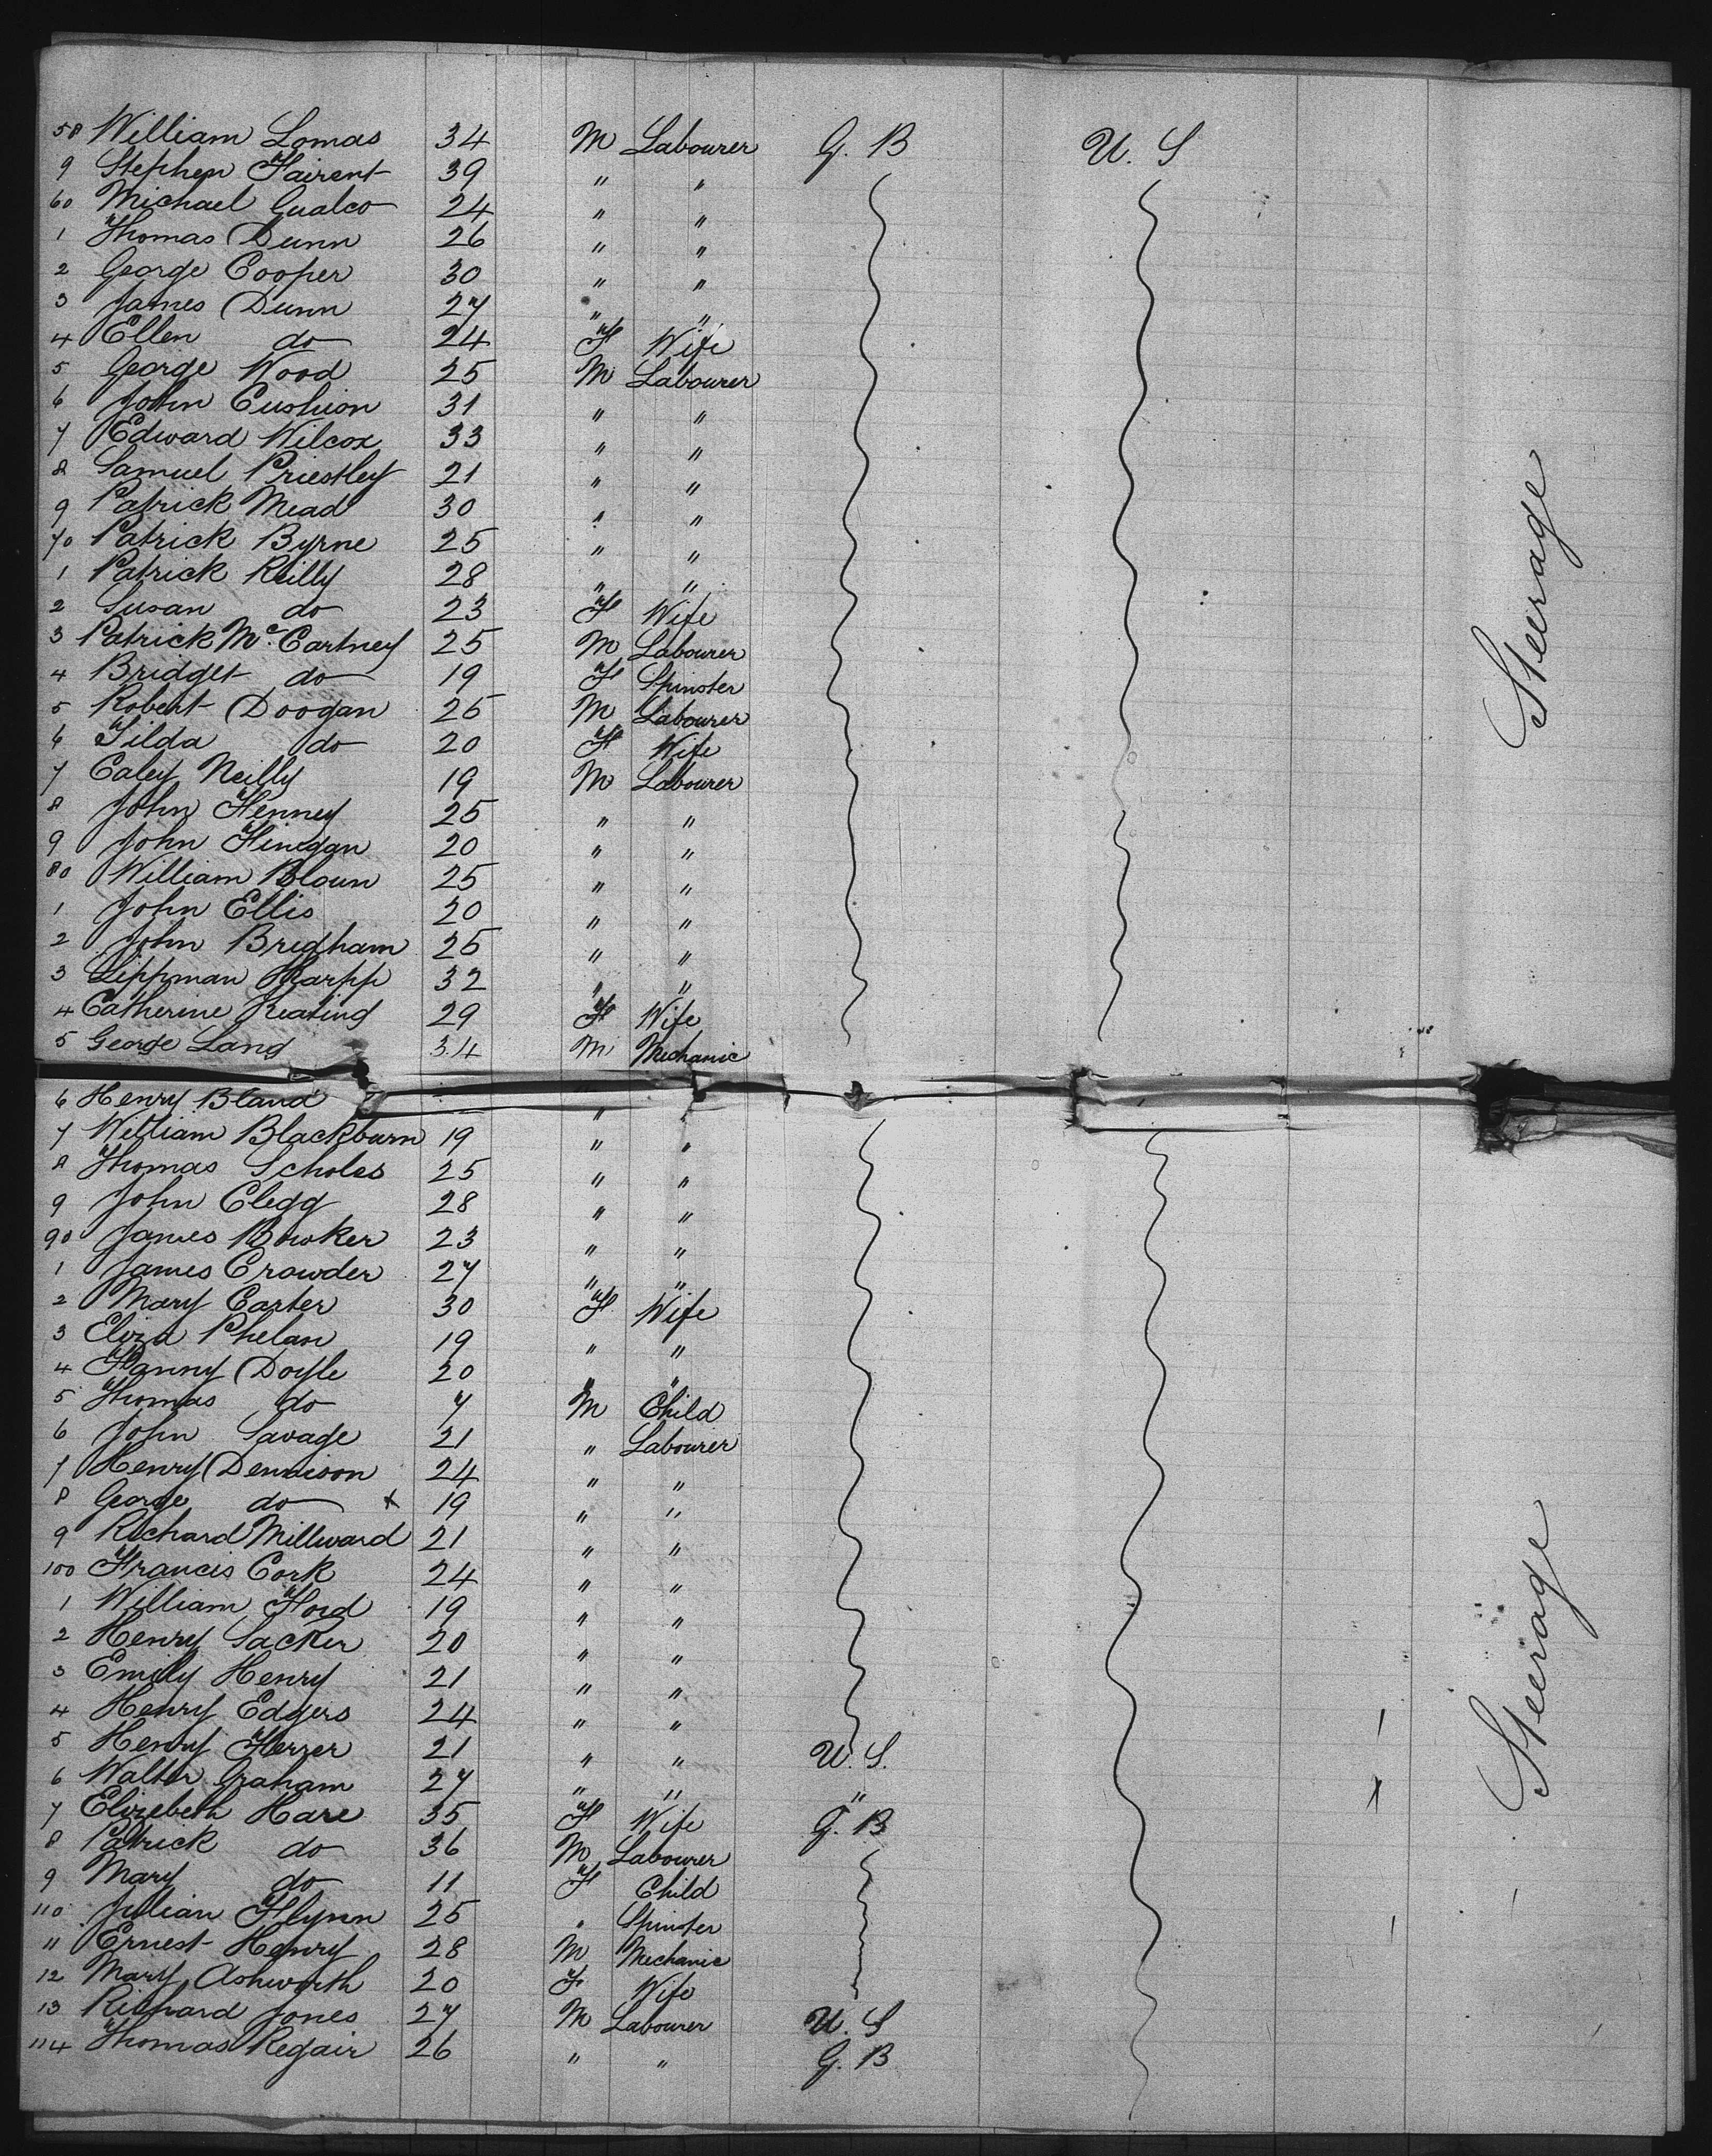 58 William Lomas 34 M Labourer G. B U. S
9 Stephen Fairent 39 " "
60 Michael Gualco 24 " "
1 Thomas Dunn 26 " "
2 George Cooper 30 " "
3 James Dunn 27 " "
4 Ellen do 24 F Wife
5 George Wood 25 M Labourer
6 John Cushion 31 " "
7 Edward Wilcox 33 " "
8 Samuel Priestley 21 " "
9 Patrick Mead 30 " "
70 Patrick Byrne 25 " "
1 Patrick Reilly 28 " "
2 Susan do 23 F Wife
3 Patrick Mc Cartney 25 M Labourer
4 Bridget do 19 F Spinster
5 Robert Doogan 25 M Labourer
6 Tilda do 20 F Wife
7 Caley Neilly 19 M Labourer
8 John Fenney 25 " "
9 John Finegan 20 " "
80 William Bloun 25 " "
1 John Ellis 20 " "
2 John Brigham 25 " "
3 Lippman Harpp 32 " "
4 Catherine Keating 29 F Wife
5 George Lang 34 M Mechanic
Steerage
6 Henry Bland "
7 William Blackburn 19 " "
8 Thomas Scholes 25 " "
9 John Clegg 28 " "
90 James Bowker 23 " "
1 James Crowder 27 " "
2 Mary Carter 30 F Wife
3 Eliza Phelan 19 " "
4 Fanny Doyle 20 " "
5 Thomas do 7 M Child
6 John Savage 21 " Labourer
7 Henry Dennison 24 " "
8 George do x 19 " "
9 Richard Millward 21 " "
100 Francis Cork 24 " "
1 William Ford 19 " "
2 Henry Sacker 20 " "
3 Emily Henry 21 " "
4 Henry Edgers 24 " "
5 Henry 21 " " U. S.
6 Walter Graham 27 " " "
7 Elizebeth Hare 35 F Wife G. B
8 Patrick do 36 M Labourer
9 Mary do 11 F Child
110 Julian Flynn 25 " Spinster
11 Ernest Henry 28 M Mechanic
12 Mary Ashworth 20 F Wife
13 Richard Jones 27 M Labourer U. S
114 Thomas Regair 26 " " G. B
Steerage